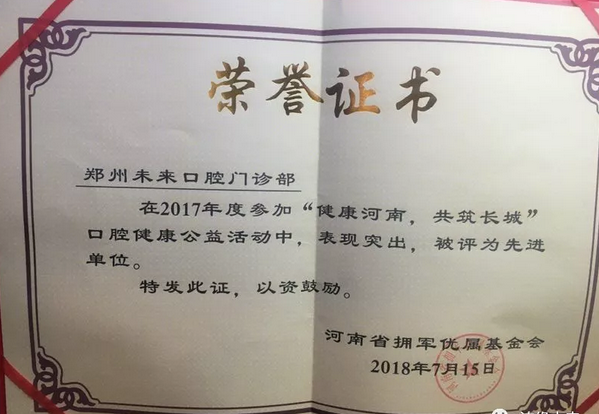 荣誉证书
郑州未来口腔门诊部
在2017年度参加“健康河南，共筑长城”
口腔健康公益活动中，表现突出，被评为先进
单位。
特发此证，以资鼓励。
河南省拥军优属基金会
2018年7月15日